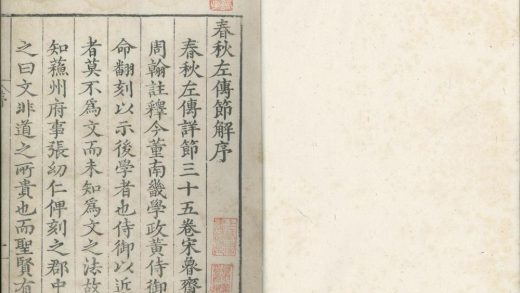 春秋左傳節解序
春秋左傳詳節三十五卷宋魯齋
周翰註釋今董南畿學政黃侍御
命翻刻以示後學者也侍御以近
者莫不為文而未知為文之法故
知蘓州府事張幼仁俾刻之郡中
之曰文非道之所貴也而聖賢有